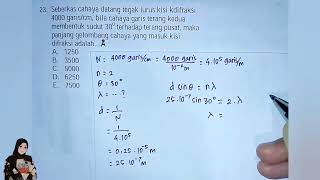 23. Seberkas cahaya datang tegak lurus kisi kdifraksi
4000 garis/cm, bila cahaya garis terang kedua
membentuk sudut 30° terhadap terang pusat, maka
panjang gelombang cahaya yang masuk kisi
difraksi adalah...Å
A. 1250
B. 3500
C. 5000
D. 6250
E. 7500
N = 4000 garis/cm = 4000 garis / 10⁻² m = 4.10⁵ garis/m
n = 2
θ = 30°
λ = ... ?
d = 1/N
= 1/4.10⁵
= 0,25.10⁻⁵ m
= 25.10⁻⁷ m
d sin θ = nλ
25.10⁻⁷ sin 30° = 2.λ
λ =